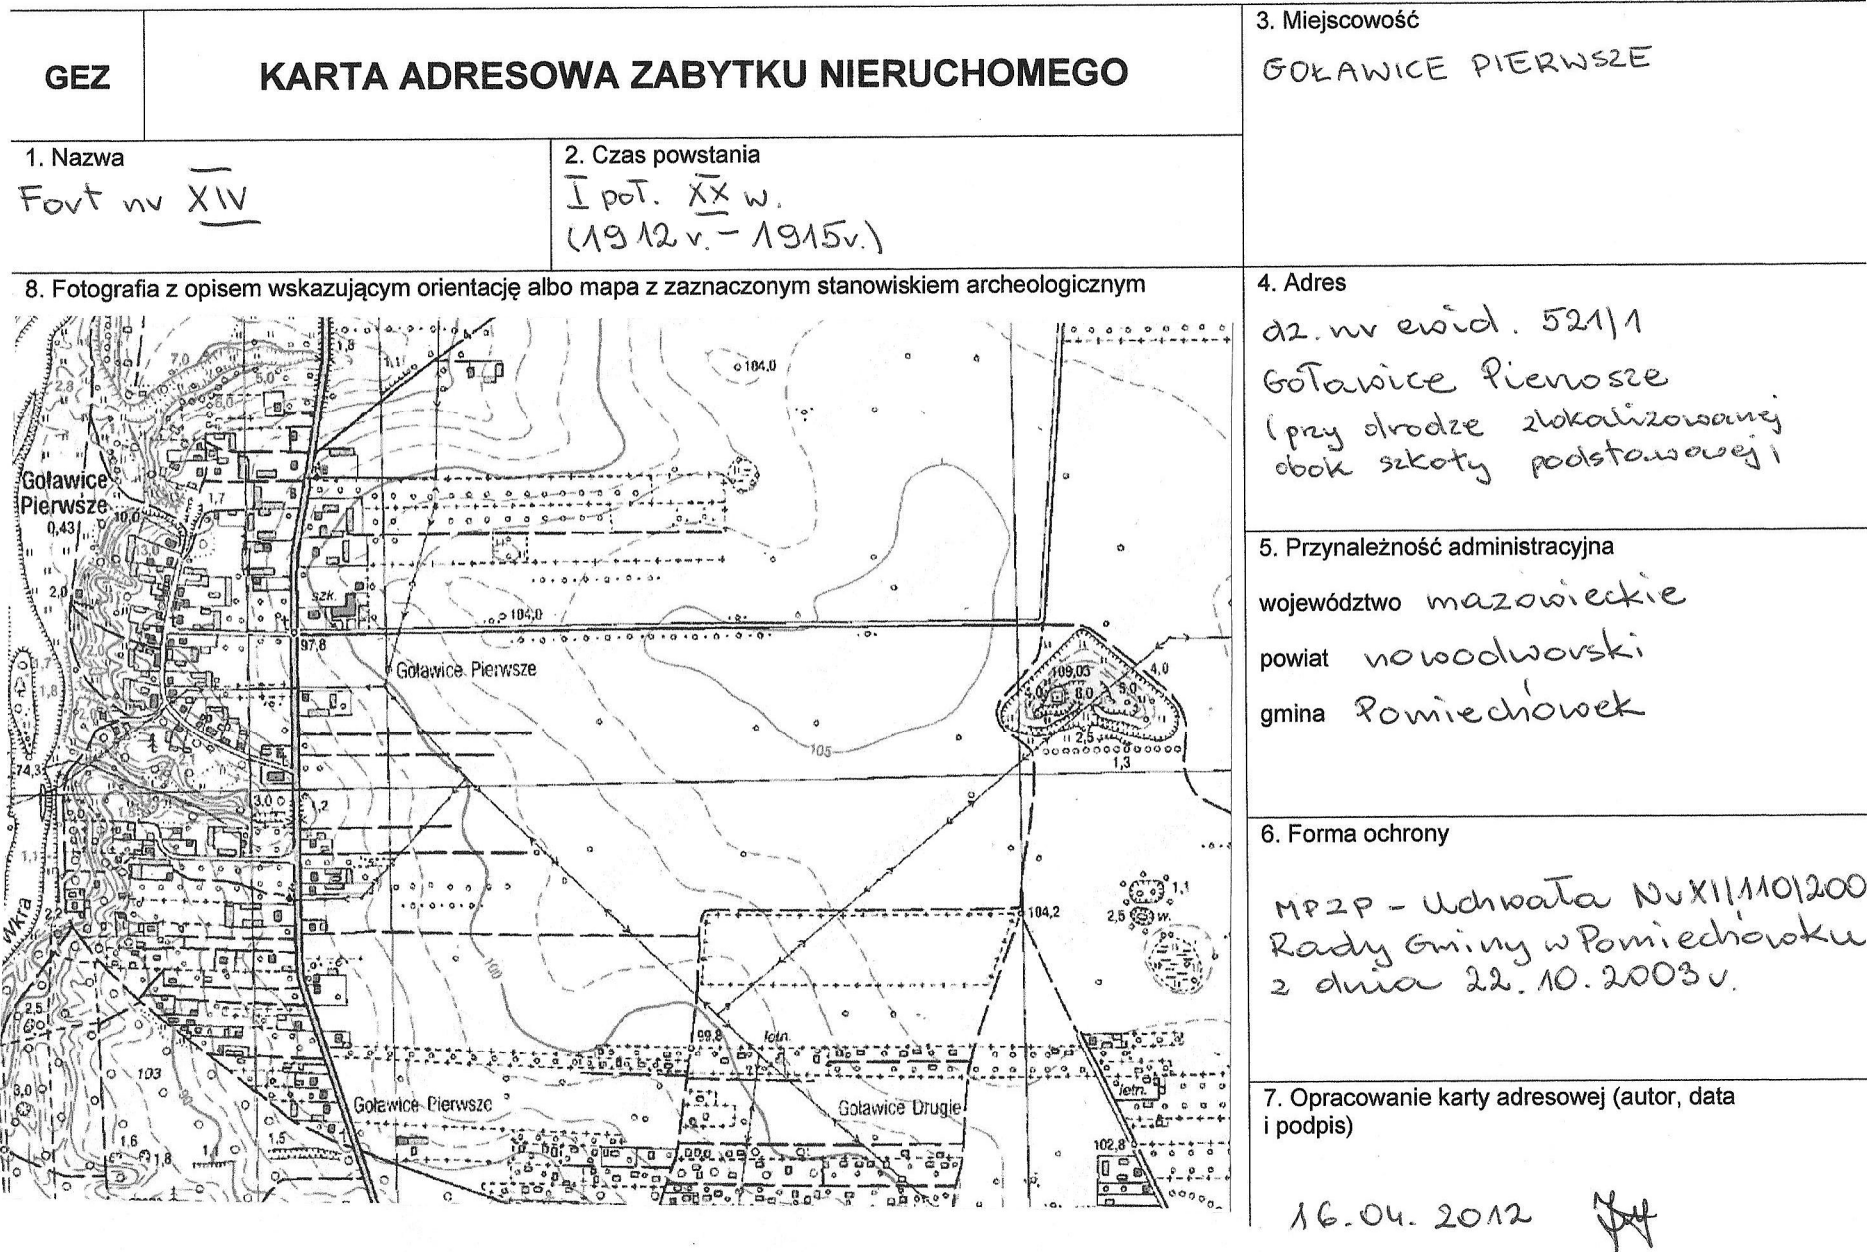 GEZ
KARTA ADRESOWA ZABYTKU NIERUCHOMEGO
1. Nazwa
Fort nr XIV
2. Czas powstania
I poł. XX w.
(1912 r. - 1915 r.)
3. Miejscowość
GOŁAWICE PIERWSZE
8. Fotografia z opisem wskazującym orientację albo mapa z zaznaczonym stanowiskiem archeologicznym
1,8
1,1
104,0
7,0
2,8
5,0
6,0
Goławice
Pierwsze
0,43
10,0
1,7
13,0
2,0
szk.
104,0
97,8
Goławice Pierwsze
109,03
4,0
4,0
8,0
5,0
2,5
1,3
1,8
105
74,3
3,0
1,2
1,1
1,1
2,5
w.
2,2
104,2
Wkra
100
2,5
99,8
letn.
103
90
3,0
Goławice Pierwsze
Goławice Drugie
letn.
1,6
1,8
1,5
102,8
4. Adres
dz. nr ewid. 521/1
Goławice Pierwsze
(przy drodze zlokalizowanej
obok szkoły podstawowej)
5. Przynależność administracyjna
województwo mazowieckie
powiat nowodworski
gmina Pomiechówek
6. Forma ochrony
MPZP - Uchwała Nr XI/110/200
Rady Gminy w Pomiechówku
z dnia 22.10.2003 r.
7. Opracowanie karty adresowej (autor, data
i podpis)
16.04.2012